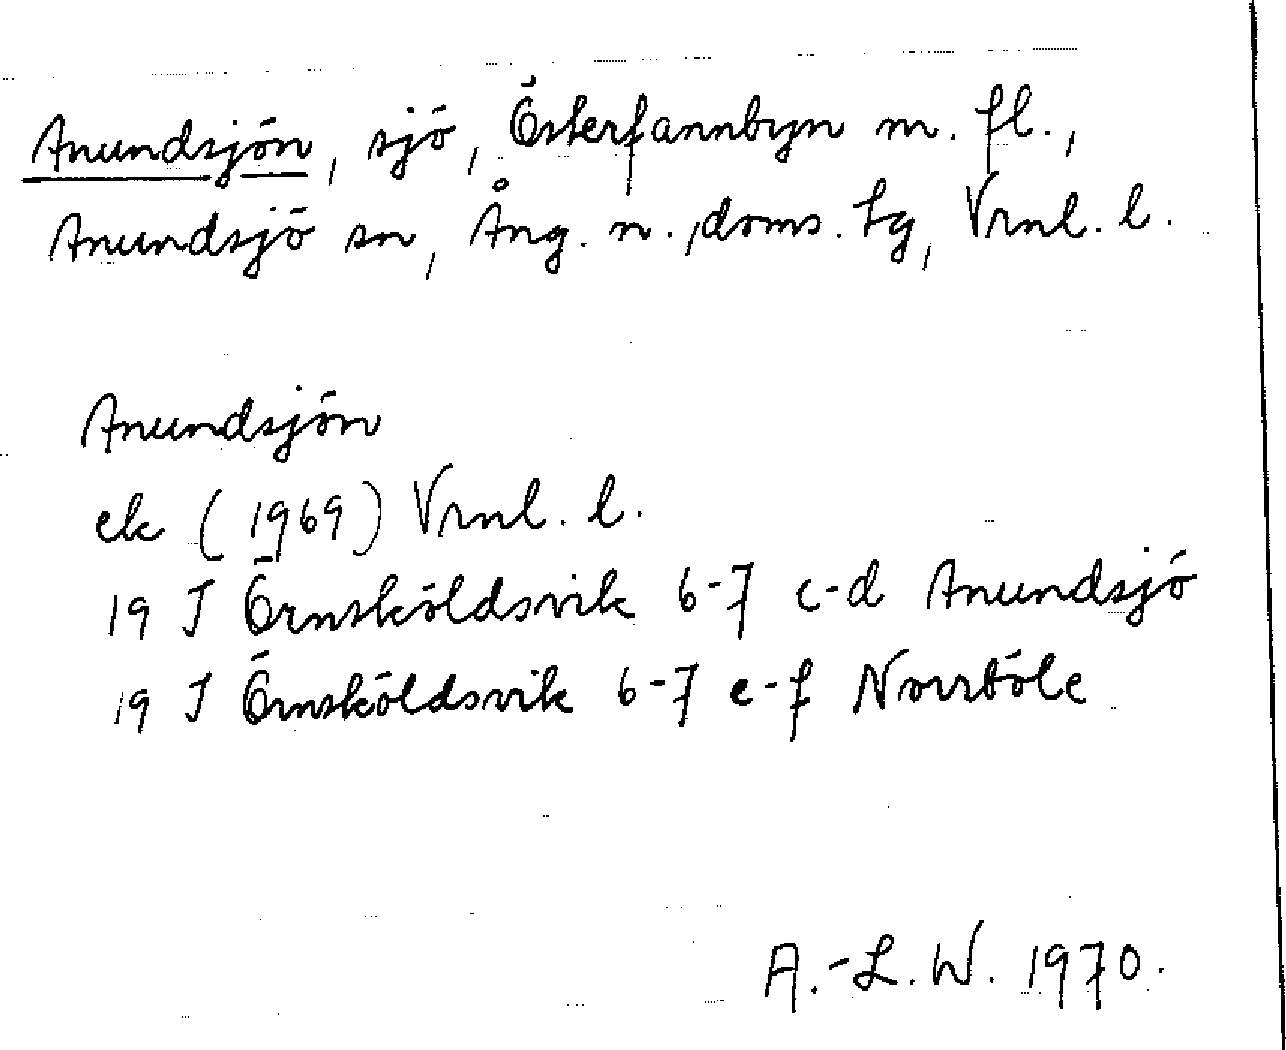 Anundsjön, sjö, Österfannbyn m. fl.,
Anundsjö sn, Ång. n., doms. tg, Vrnl. l.
Anundsjön
ek (1969) Vrnl. l.
19 J Örnsköldsvik 6-7 c-d Anundsjö
19 J Örnsköldsvik 6-7 e-f Norrböle
A.-L. W. 1970.